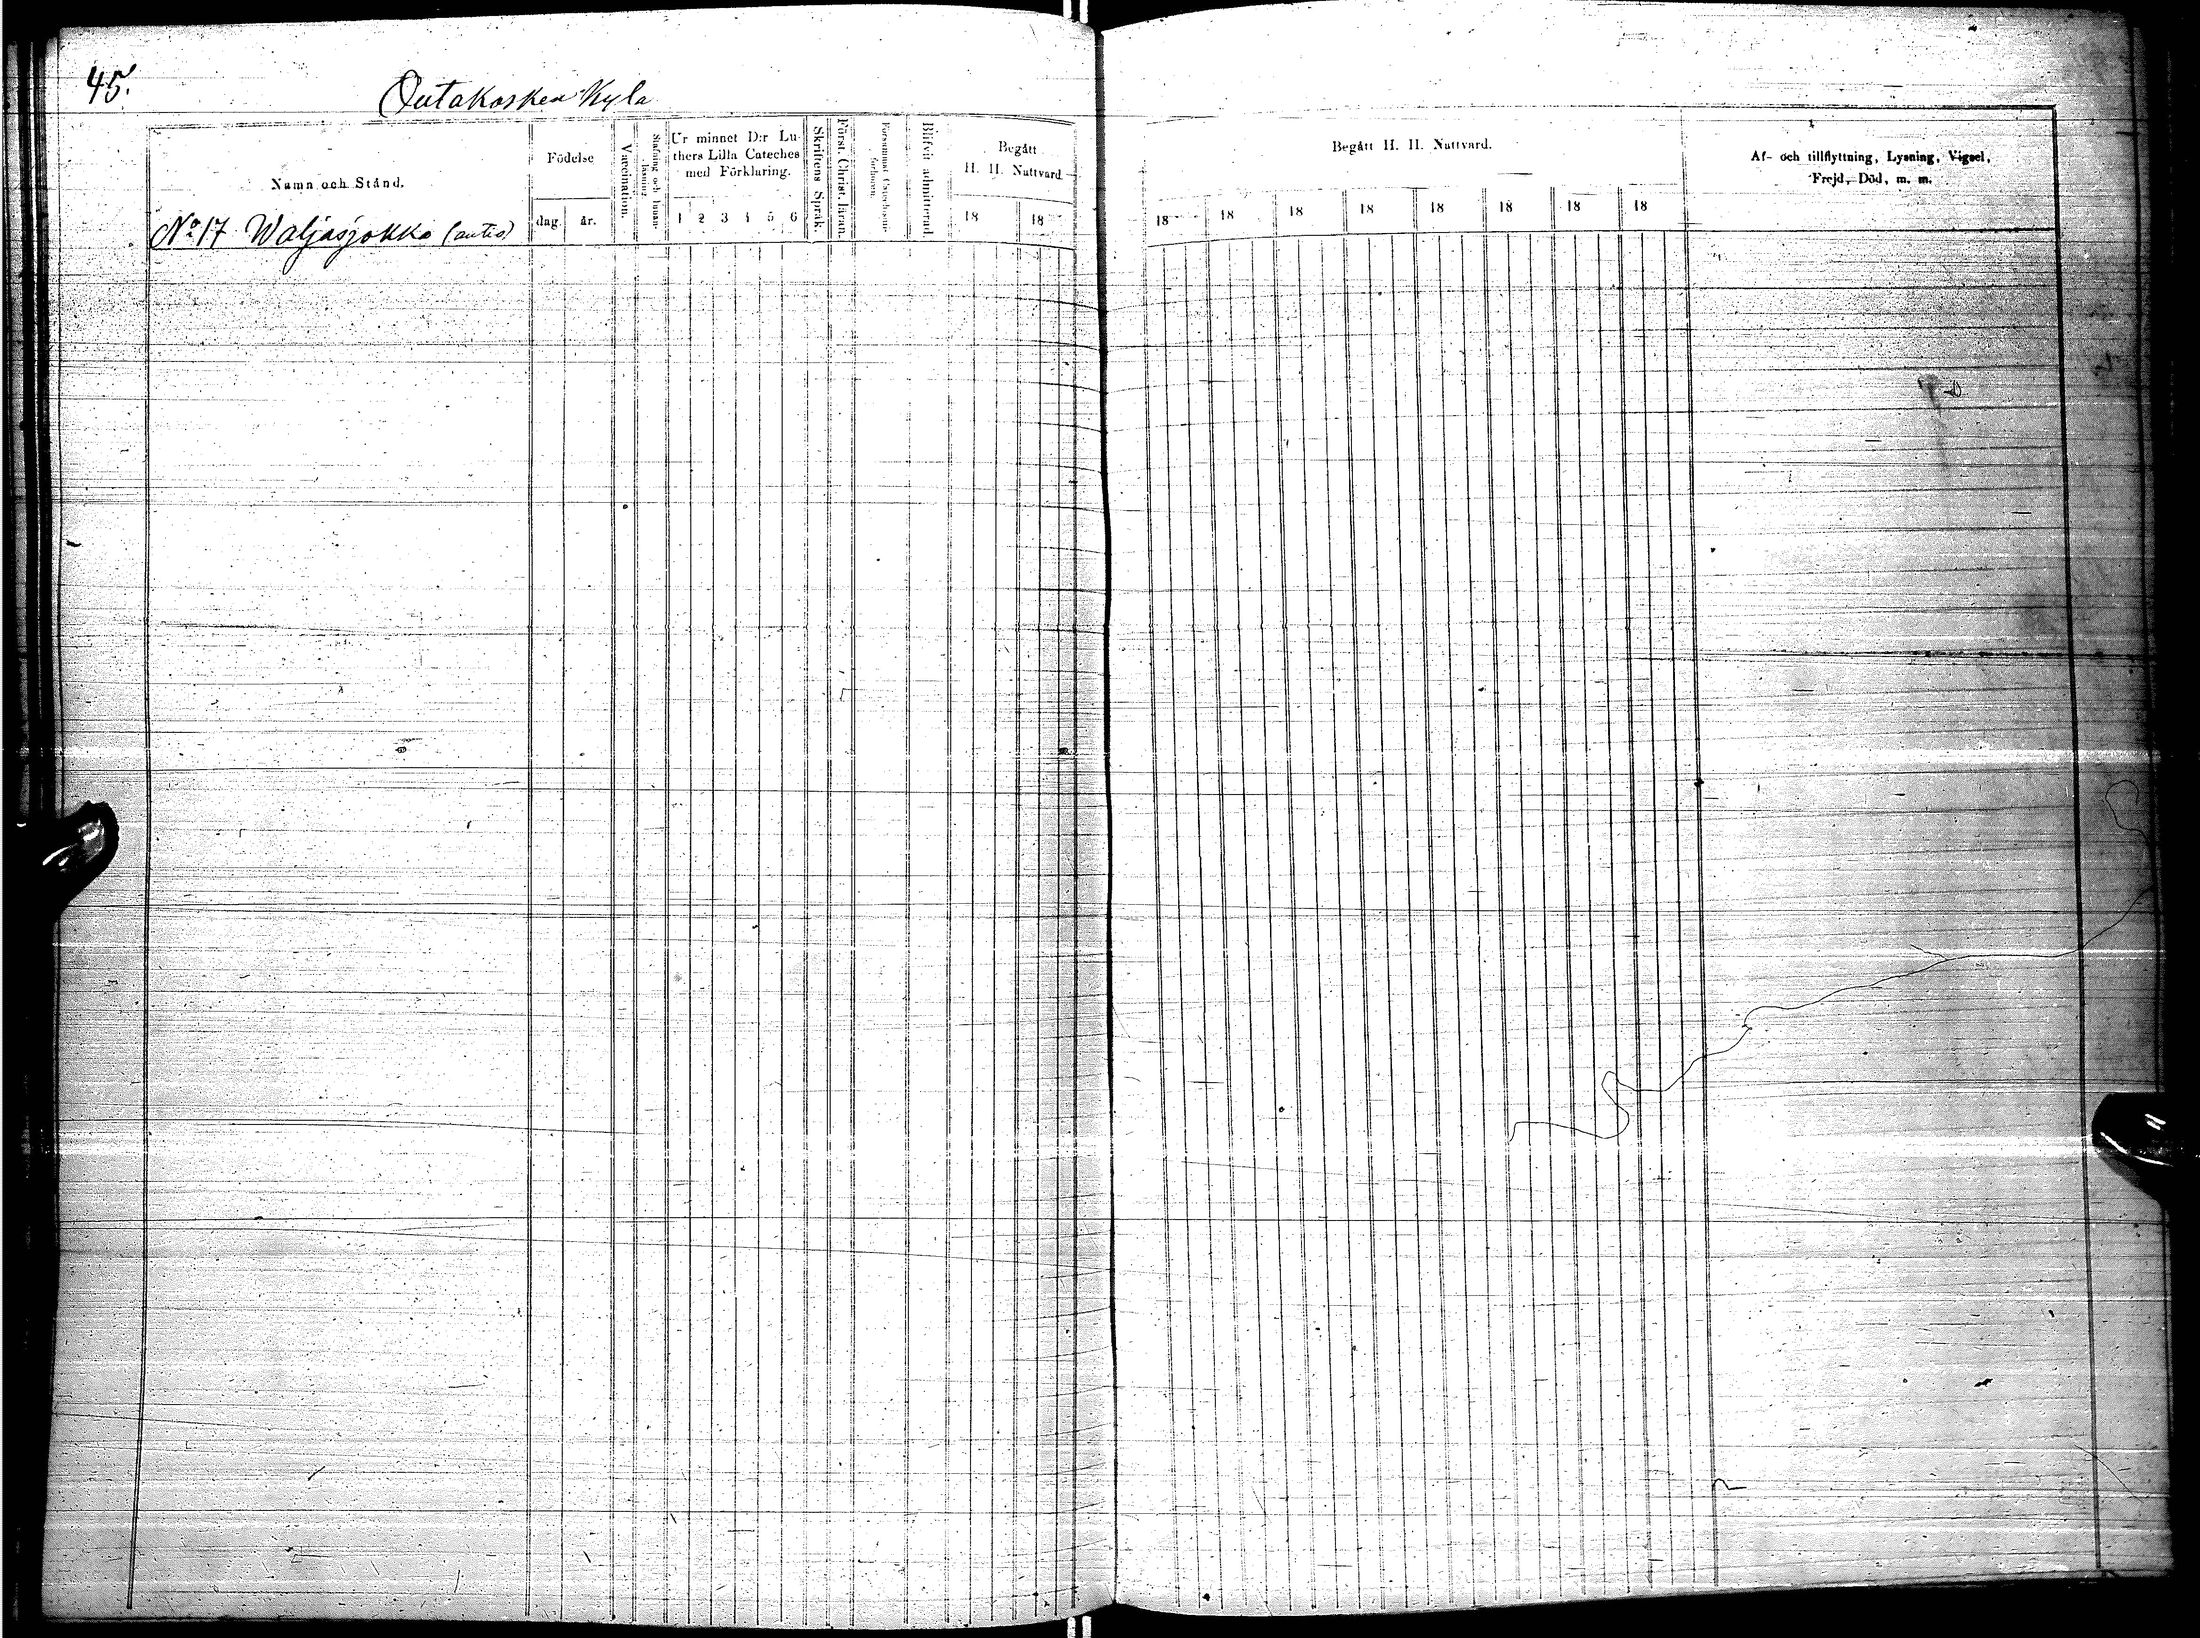 45.
Outakosken Kyla
Namn och Stånd.
Födelse
dag.
år.
Vaccination.
Stafning och Innan-
läsning
Ur minnet D:r Lu-
thers Lilla Cateches
med Förklaring.
1 2 3 4 5 6
Skriftens Språk.
Först. Christ. läran.
Försummat Catechismi-
förhören.
Blifvit admitterad.
Begått
H. H. Nattvard
18 18
Begått H. H. Nattvard.
18 18 18 18 18 18 18 18
Af- och tillflyttning, Lysning, Vigsel,
Frejd, Död, m. m.
No 17 Waljasjokko (autio)